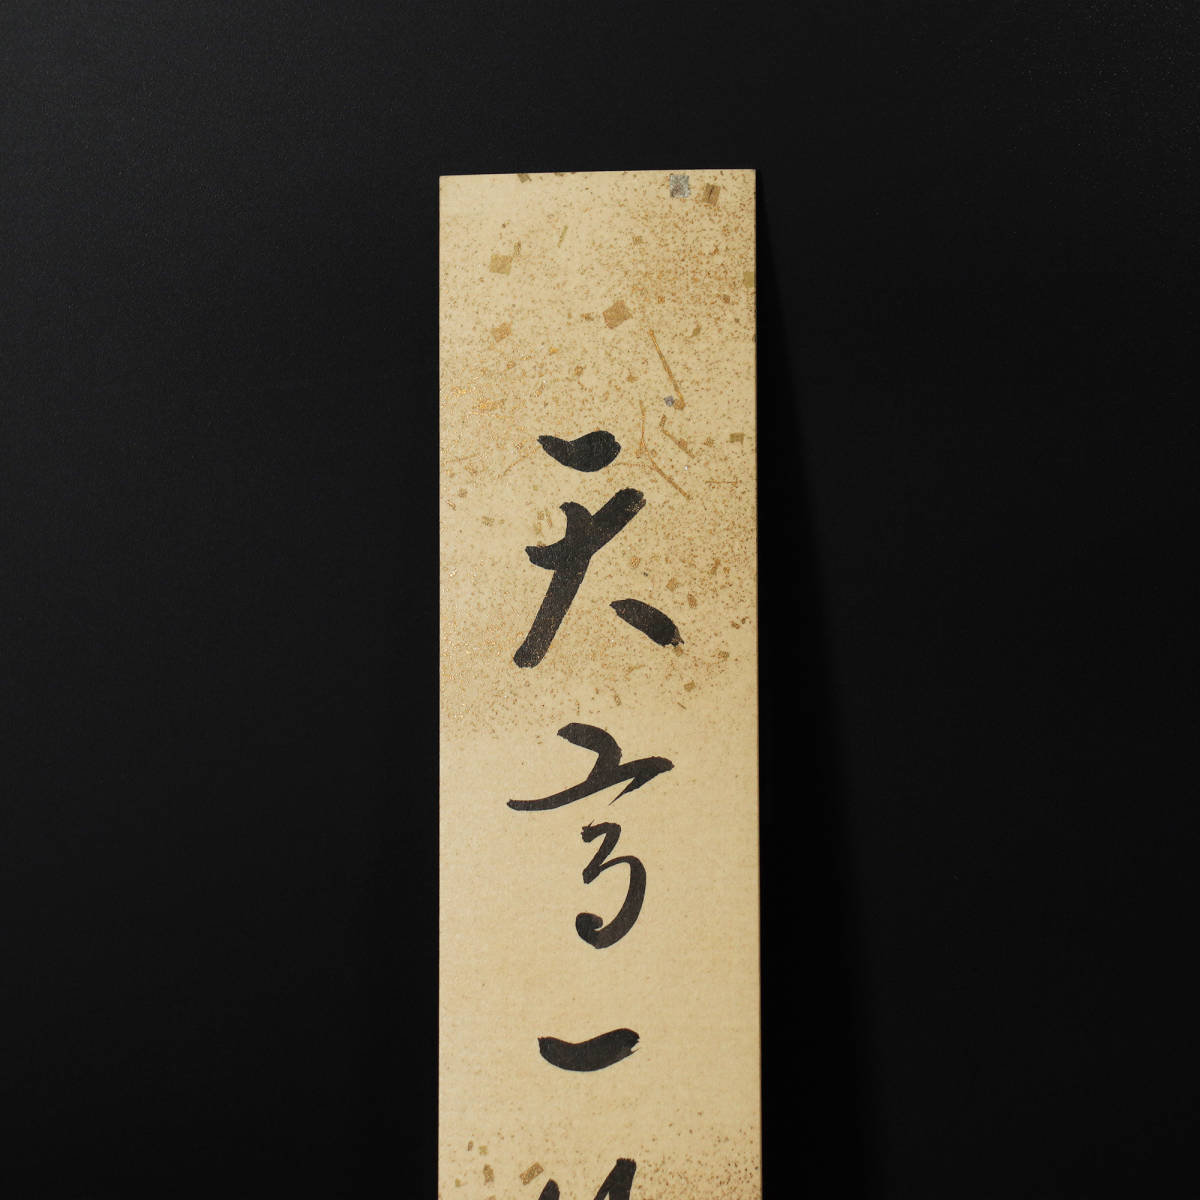 天高一